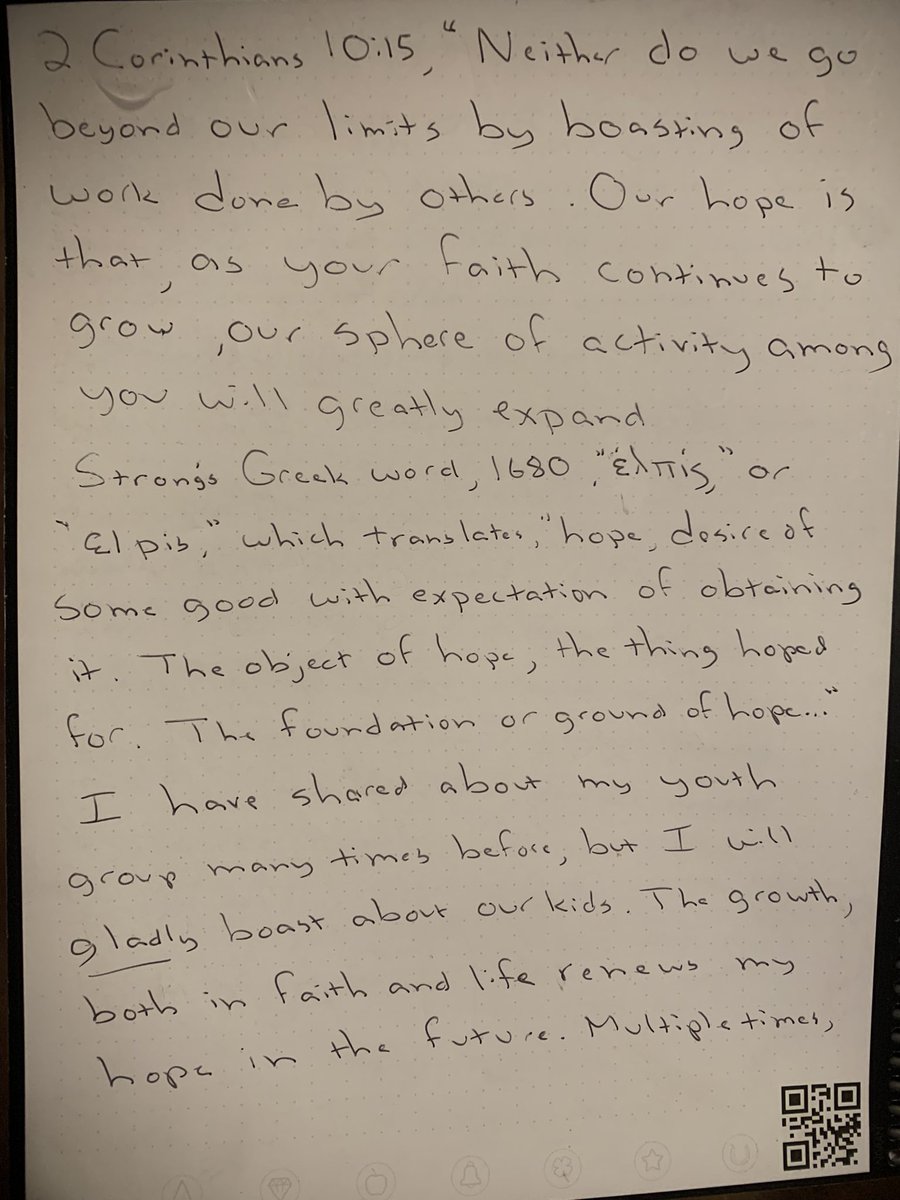 2 Corinthians 10:15, "Neither do we go
beyond our limits by boasting of
work done by others. Our hope is
that, as your faith continues to
grow, our sphere of activity among
you will greatly expand
Strong's Greek word, 1680, "ἐλπίς," or
"Elpis," which translates, "hope, desire of
some good with expectation of obtaining
it. The object of hope, the thing hoped
for. The foundation or ground of hope..."
I have shared about my youth
group many times before, but I will
gladly boast about our kids. The growth,
both in faith and life renews my
hope in the future. Multiple times,